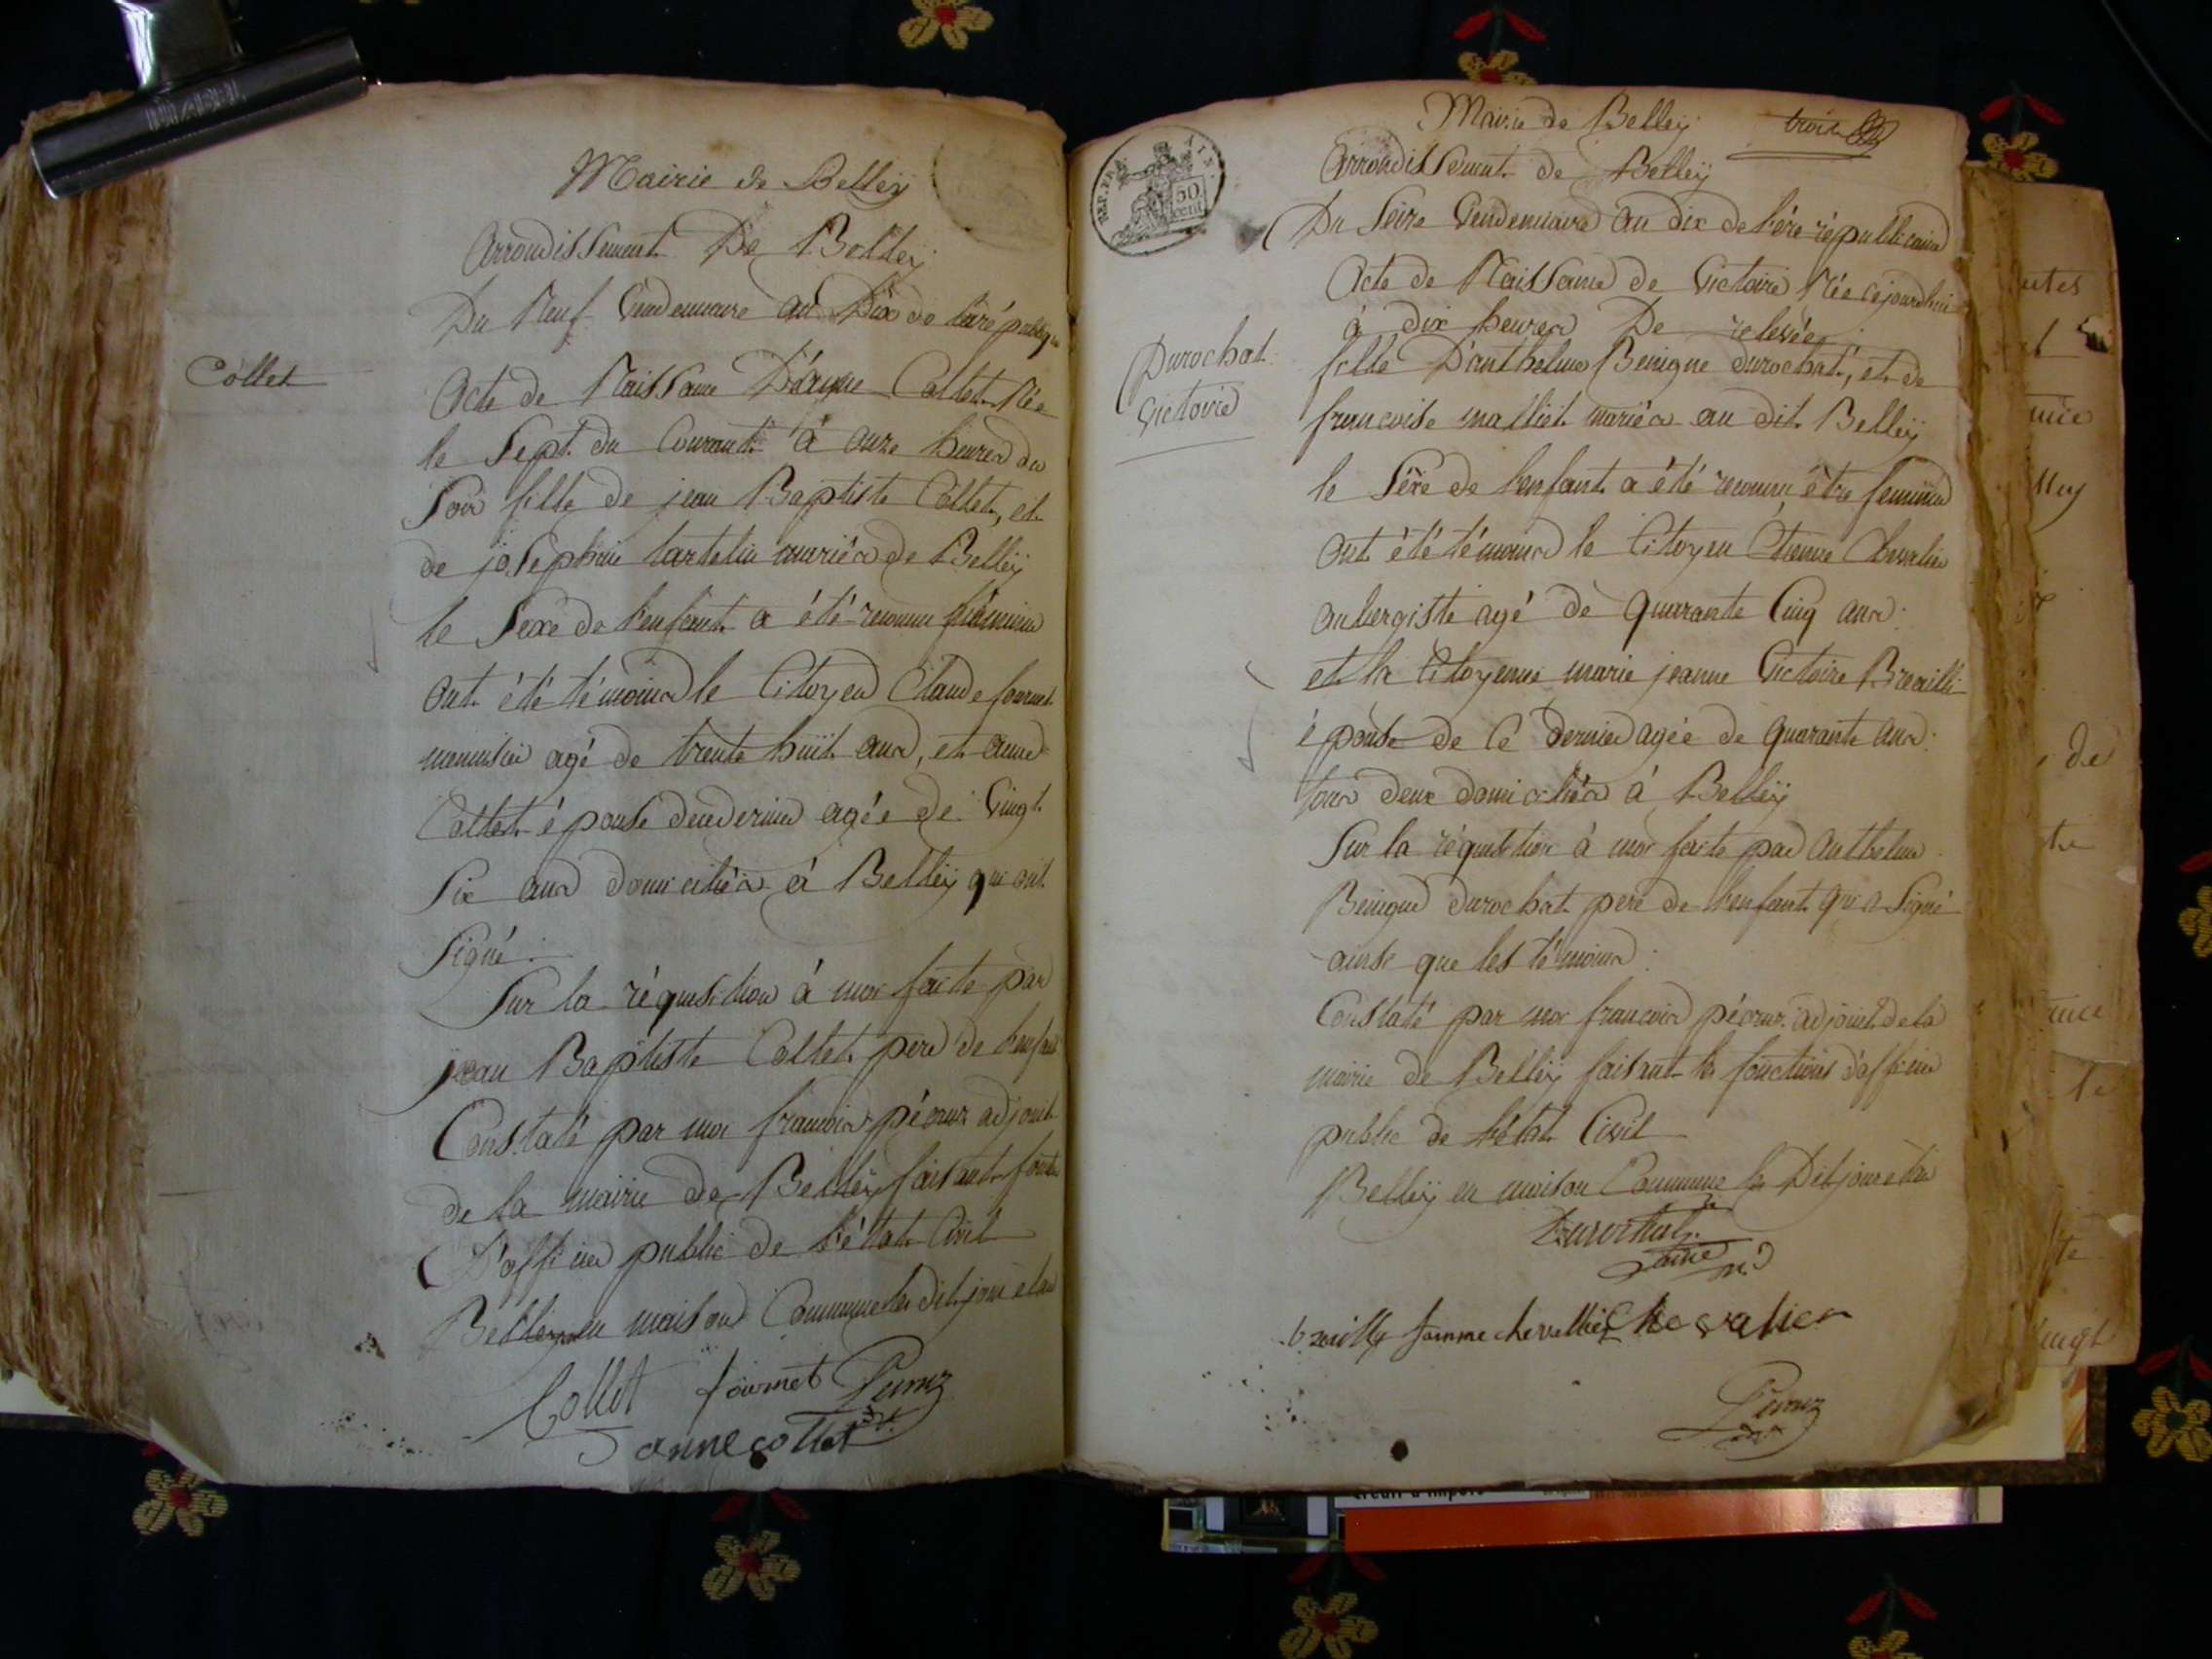 Mairie de Belley
Arrondissement De Belley
Du Neuf Vendemiaire an Dix de l'ère
Collet
Acte de Naissance D'anne Collet Née
le Sept du Courant à onze heures du
Soir fille de jean Baptiste Collet, et
de josephine mariés de Belley
le Sexe de l'enfant a été reconnu féminin
ont été témoins le Citoyen Claude fournet
menuisier agé de trente huit ans, et anne
Collet épouse de ce dernier agée de Vingt
Six ans domiciliés à Belley qui ont
Signé.
Sur la réquisition à moi faite par
jean Baptiste Collet père de l'enfant
Constaté par moi françois adjoint
de la mairie de Belley faisant
D'officier public de l'état Civil
Belley en maison Commune les dit jour et an
Collet fournet
anne collet
Mairie de Belley
trois
Arrondissement de Belley
REP. FRA.
AIN.
50
cent.
Du Seize Vendemiaire an dix de l'ère républicaine
Acte de Naissance de Victoire Née cejourd'hui
à dix heures De relevée
Durochat
Victoire
fille D'anthelme Benigne durochat, et de
francoise malliet mariés au dit Belley
le Sexe de l'enfant a été reconnu être feminin
ont été témoins le Citoyen Etienne Chevalier
aubergiste agé de quarante Cinq ans.
et la Citoyenne marie jeanne Victoire
épouse de ce dernier agée de quarante ans.
tous deux domiciliés à Belley
Sur la réquisition à moi faite par anthelme
Benigne durochat pere de l'enfant qui a Signé
ainsi que les témoins.
Constaté par moi francois adjoint de la
mairie de Belley faisant les fonctions d'officier
public de l'état Civil
Belley en maison Commune les Dit jour et an
Durochat
femme chevallier Chevalier